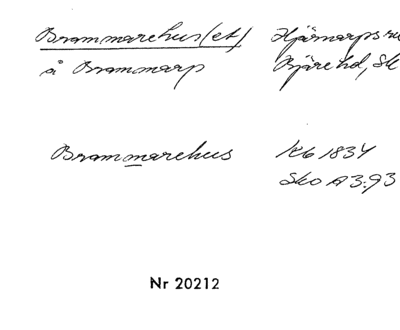 Brammarehus(et) Hjärnarps
å Brammarp Bjäre hd, Sk
Brammarehus Kb 1834
Sko A3:93
Nr 20212